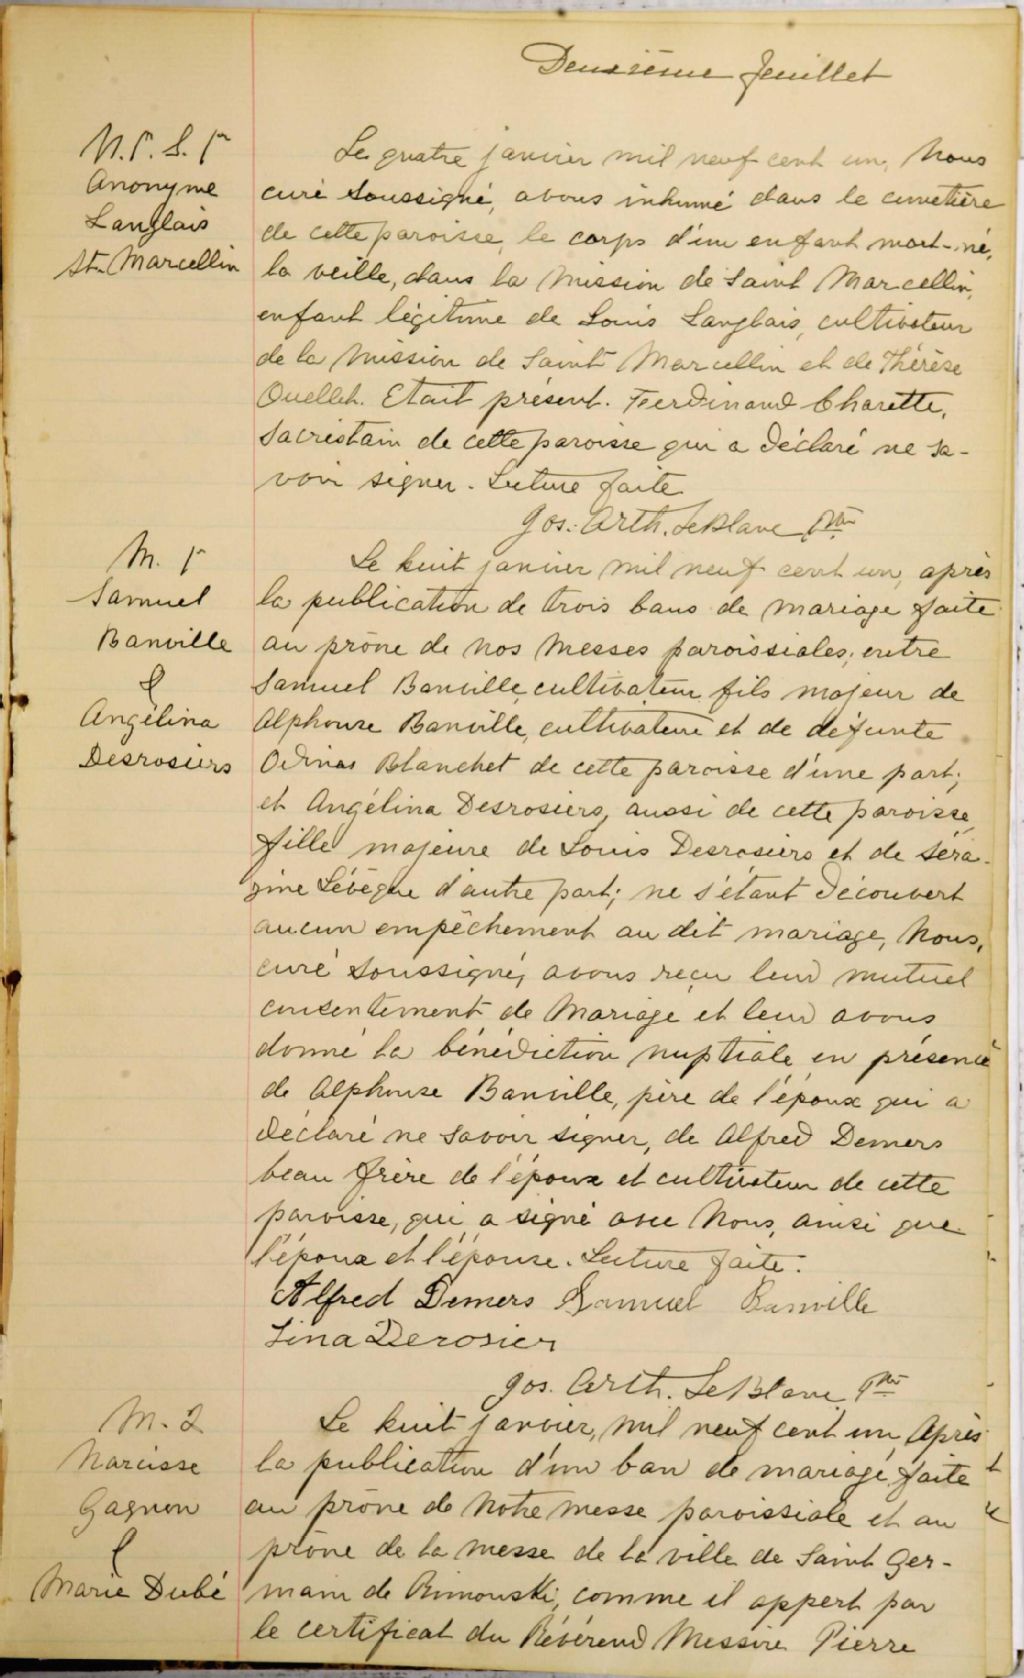 Deuxième feuillet
N. 1. S. 1er
Anonyme
Langlais
St. Marcellin
Le quatre janvier mil neuf cent un, Nous
curé soussigné, avons inhumé dans le cimetière
de cette paroisse, le corps d'un enfant mort-né,
la veille, dans la Mission de Saint Marcellin,
enfant légitime de Louis Langlais, cultivateur
de la Mission de Saint Marcellin et de Thérèse
Ouellet. Etait présent. Ferdinand Charette,
Sacristain de cette paroisse qui a déclaré ne sa-
voir signer. Lecture faite
Jos. Arth. LeBlanc Ptre
M. 1
Samuel
Banville
&
Angélina
Desrosiers
Le huit janvier mil neuf cent un, après
la publication de trois bans de mariage faite
au prône de nos Messes paroissiales, entre
Samuel Banville, cultivateur, fils majeur de
Alphonse Banville, cultivateur et de défunte
Odinas Blanchet de cette paroisse d'une part;
et Angélina Desrosiers, aussi de cette paroisse,
fille majeure de Louis Desrosiers et de Séra-
zine Lévêque d'autre part; ne s'étant découvert
aucun empêchement au dit mariage, Nous,
curé soussigné, avons reçu leur mutuel
consentement de Mariage et leur avons
donné la bénédiction nuptiale en présence
de Alphonse Banville, père de l'époux qui a
déclaré ne savoir signer, de Alfred Demers
beau frère de l'époux et cultivateur de cette
paroisse, qui a signé avec Nous, ainsi que
l'époux et l'épouse. Lecture faite.
Alfred Demers Samuel Banville
Lina Derosier
Jos. Arth. LeBlanc Ptre
M. 2
Narcisse
Gagnon
&
Marie Dubé
Le huit janvier, mil neuf cent un, Après
la publication d'un ban de mariage faite
au prône de Notre messe paroissiale et au
prône de la Messe de la ville de Saint Ger-
main de Rimouski, comme il appert par
le certificat du Révérend Messire Pierre